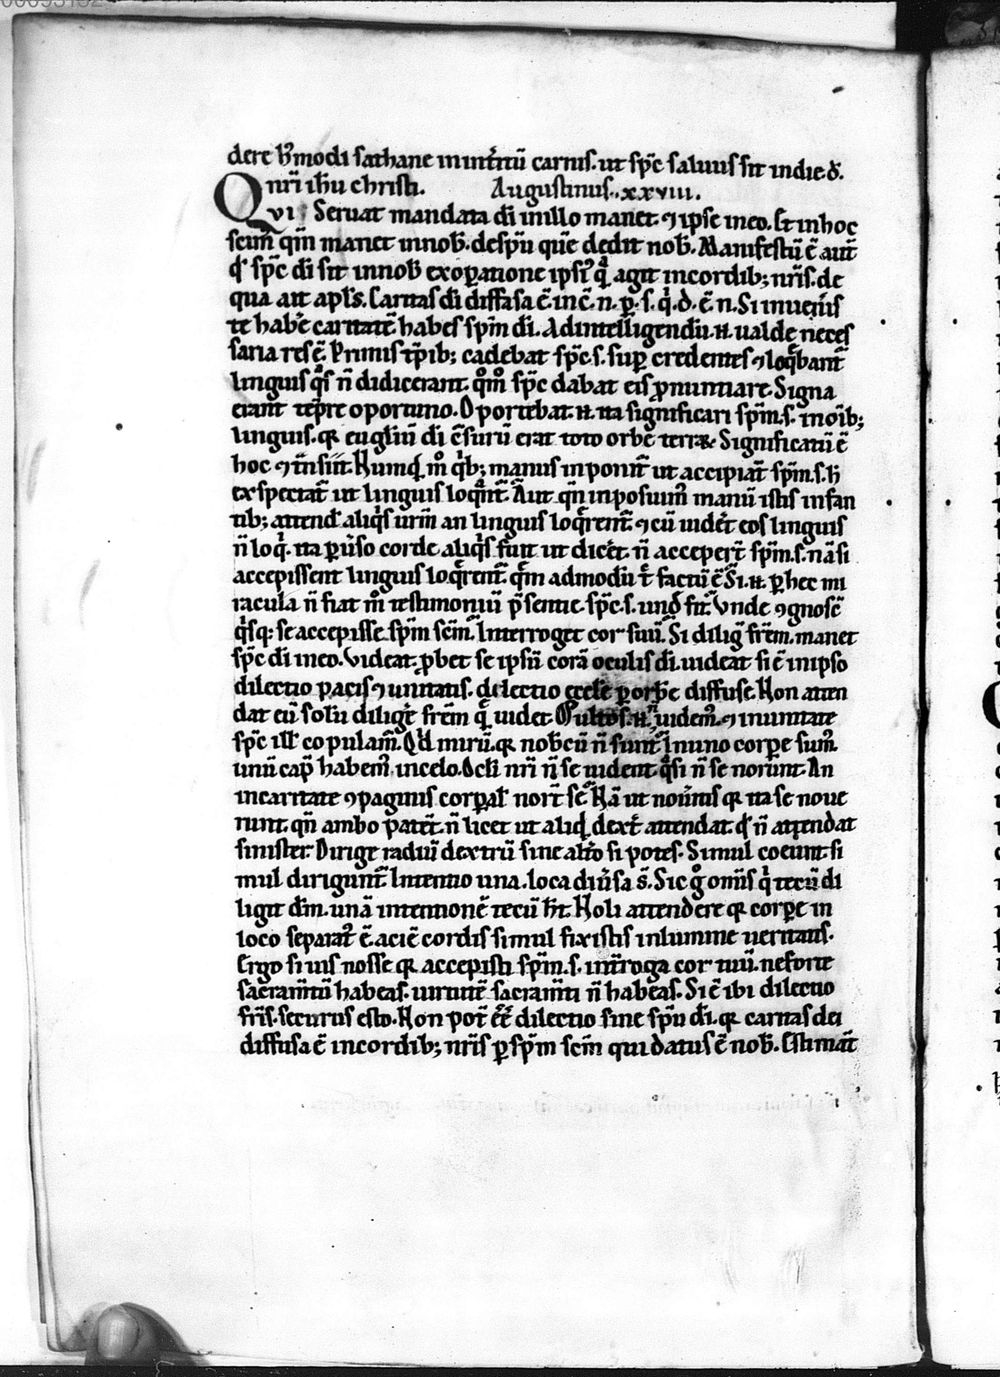 dere hꝰmodi sathane inint̾itū carnis. ut sp̄c saluus sit in die d̾.
nr̄i ih̄u christi. Augustinus. xxviii.
Qvi Seruat mandata dī in illo manet. ⁊ ipse in eo. Et in hoc
scim̾ qm̄ manet in nob̄. de sp̄u quē dedit nob̄. Manifestū ē aut̄
qd̾ sp̄c dī sit in nob̄ ex op̱atione ipsi᷒ q̾ agit in cordib; nr̄is. de
qua ait apl̄s. Caritas dī diffusa ē. in c̄. n. p̱. s. q̾. d. ē n. Si inueneris
te habe̾ caritatē habes sp̄m dī. Ad intelligendū. n̄. ualde neces
saria res ē. Primis tp̄ib; cadebat sp̄c. s. sup̱ credentes ⁊ loq̾bant̾
linguis q̾s n̄ didicerant. q̊m̊ sp̄c dabat eis p̱nuntiare. Signa
erant tep̱re oportuno. Oportebat. n̄. ita significari sp̄m. s. in oīb;
linguis. q̱ euglīū dī c̄surū erat toto orbe terraꝝ Significatū ē
hoc ⁊ t̄nsiit. Numqd̾ m̊ q̾b; manus inponit̾ ut accipiāt sp̄m. s. h̄
exspectat̾ ut linguis loq̾nt̾. Aut qn̄ inposuim̾ manū istis infan
tib; attend̾ aliq̾s ur̄m an linguis loq̾rent̾. ⁊ cū uider̾et eos linguis
n̄ loq̾. ita p̱uso corde aliq̾s fuit ut dicer̾et. n̄ acceper̄t sp̄m. s. nā si
accepissent linguis loq̾rent̾. q̄m admodū t̄ factū ē. Si. n̄. p̱ hec mi
racula n̄ fiat m̊ testimoniū p̄sentie. sp̄c. s. und̾ fit. Vnde ⁊gnosc̄
q̾sq; se accepisse sp̄m scm̄. Interroget cor suū. Si dilig̾ fr̄em. manet
sp̄c dī in eo. Videat. p̱bet se ipsū corā oculis dī. uideat si ē in ipso
dilectio pacis ⁊ unitatis. dilectio eccle p̱ orbē diffuse. Non atten
dat eū solū dilige̾ fr̄em q̾ uidet. Multos. n̄. n̄ uidem̾. ⁊ in unitate
sp̄c ill̾ copulam̾. Qd̾ mirū. q̱ nob̄cū n̄ sunt. In uno corpe sum̾.
unū cap̄ habem̾. in celo. Ocl̄i nr̄i n̄ se uident q̾si n̄ se norunt. An
in caritate ⁊paginis corp̱al̾ nor̄t se. Nā ut noūitis q̱ ita se noue
runt. qn̄ ambo patēt. n̄ licet ut aliqd̾ dext̾ attendat. qd̾ n̄ attendat
sinister. Dirige radiū dextrū sine alt̾o si potes. Simul coeunt. si
mul dirigunt̾. Intentio una. loca diu̾sa s̄. Sic g̊ om̄s q̾ tecū di
ligit dm̄. unā intentionē tecū h̄t. Noli attendere q̱ corpe in
loco separat̾ ē. aciē cordis simul fixistis in lumine ueritatis.
Ergo si uis nosse q̱ accepisti sp̄m. s. int̾roga cor tuū. ne forte
sacram̄tū habeas. uirtutē sacram̄ti n̄ habeas. Si ē ibi dilectio
fr̄is. securus esto. Non pot̄ ēē dilectio sine sp̄u dī. q̱ caritas dei
diffusa ē in cordib; nr̄is p̱ sp̄m scm̄ qui datus ē nob̄. Estimāt